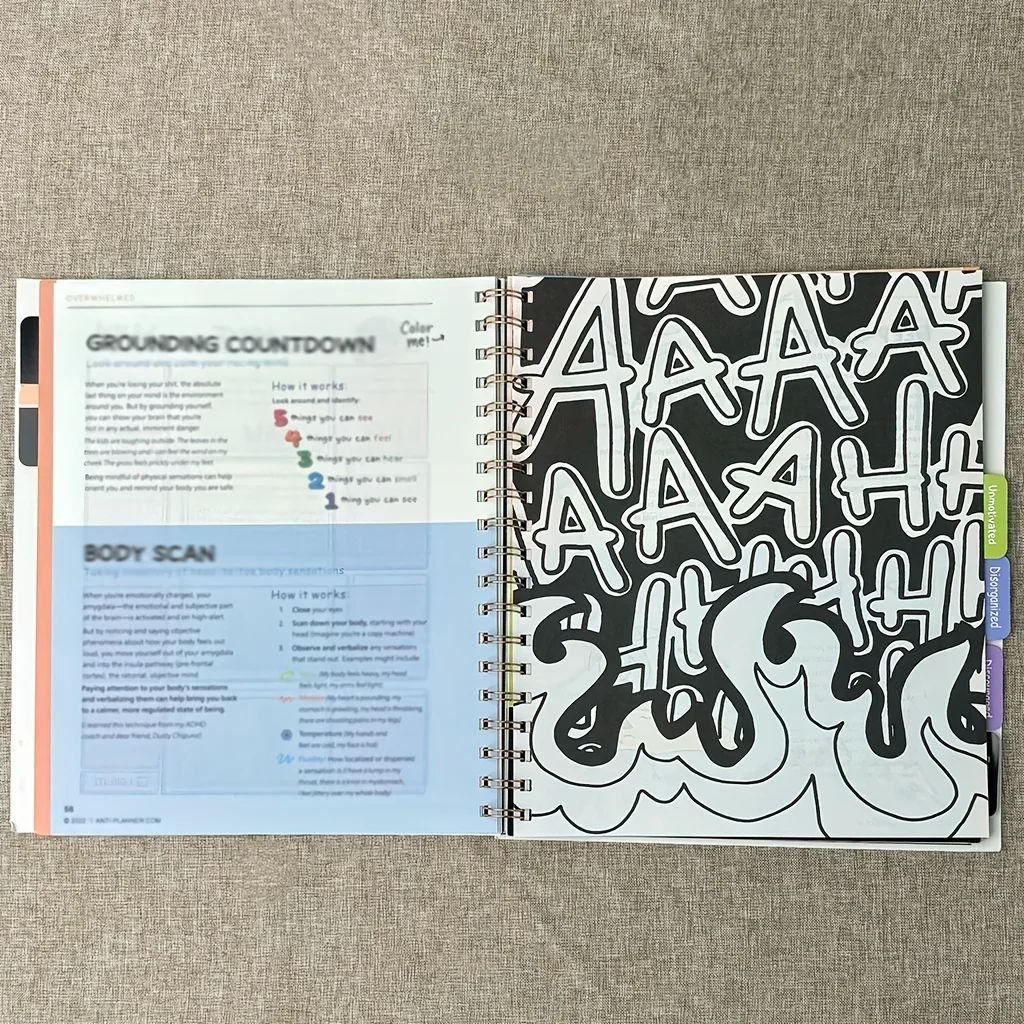 OVERWHELMED
GROUNDING COUNTDOWN
Color
me!
Look around and calm your racing mind
When you're losing your shit, the absolute
last thing on your mind is the environment
around you. But by grounding yourself,
you can show your brain that you're
not in any actual, imminent danger
The kids are laughing outside. The leaves in the
trees are blowing and I can feel the wind on my
cheek. The grass feels prickly under my feet
Being mindful of physical sensations can help
orient you and remind your body you are safe
How it works:
Look around and identify
5 things you can see
4 things you can feel
3 things you can hear
2 things you can smell
1 thing you can see
BODY SCAN
Taking inventory of head-to-toe body sensations
When you're emotionally charged, your
amygdala—the emotional and subjective part
of the brain—is activated and on high-alert.
But by noticing and saying objective
phenomena about how your body feels out
loud, you move yourself out of your amygdala
and into the insula pathway (pre-frontal
cortex), the rational, objective mind.
Paying attention to your body's sensations
and verbalizing them can help bring you back
to a calmer, more regulated state of being.
(I learned this technique from my ADHD
coach and dear friend, Dusty Chipura!)
How it works:
1. Close your eyes
2. Scan down your body, starting with your
head (imagine you're a copy machine)
3. Observe and verbalize any sensations
that stand out. Examples might include:
(My body feels heavy, my head
feels light, my arms feel tight)
(My heart is pounding, my
stomach is growling, my head is throbbing,
there are shooting pains in my leg)
Temperature (My hands and
feet are cold, my face is hot)
Fluidity: How localized or dispersed
a sensation is (I have a lump in my
throat, there is a knot in my stomach,
I feel jittery over my whole body)
56
© 2022 | ANTI-PLANNER.COM
AAAA
AAAHH
HHHH
Unmotivated
Disorganized
Discouraged